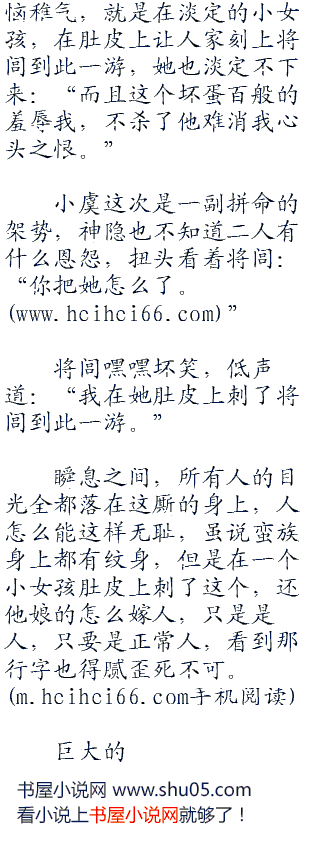 恼稚气，就是在淡定的小女
孩，在肚皮上让人家刻上将
闾到此一游，她也淡定不下
来：“而且这个坏蛋百般的
羞辱我，不杀了他难消我心
头之恨。”
小虞这次是一副拼命的
架势，神隐也不知道二人有
什么恩怨，扭头看着将闾：
“你把她怎么了。
(www.hcihci66.com)”
将闾嘿嘿坏笑，低声
道：“我在她肚皮上刺了将
闾到此一游。”
瞬息之间，所有人的目
光全都落在这厮的身上，人
怎么能这样无耻，虽说蛮族
身上都有纹身，但是在一个
小女孩肚皮上刺了这个，还
他娘的怎么嫁人，只是是
人，只要是正常人，看到那
行字也得腻歪死不可。
(m.hcihci66.com手机阅读)
巨大的
书屋小说网 www.shu05.com
看小说上书屋小说网就够了！